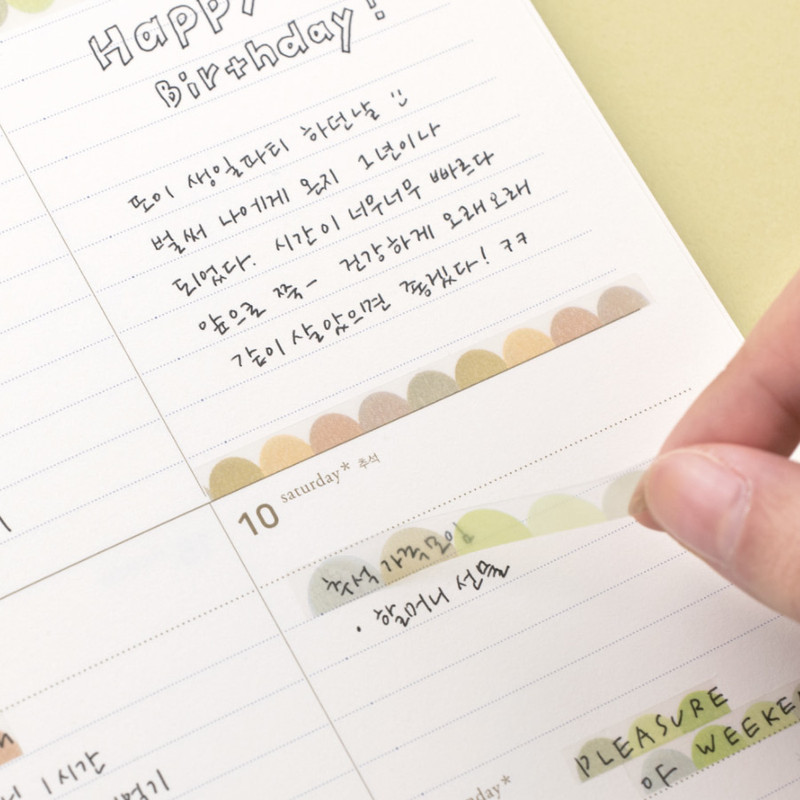 Happy
Birthday!
또이 생일파티 하던날 :)
벌써 나에게 온지 1년이나
되었다. 시간이 너무너무 빠르다
앞으로 쭉- 건강하게 오래오래
같이 살았으면 좋겠다! ㅋㅋ
10 saturday* 추석
추석 가족모임
• 할머니 선물
PLEASURE
OF WEEKE
1시간